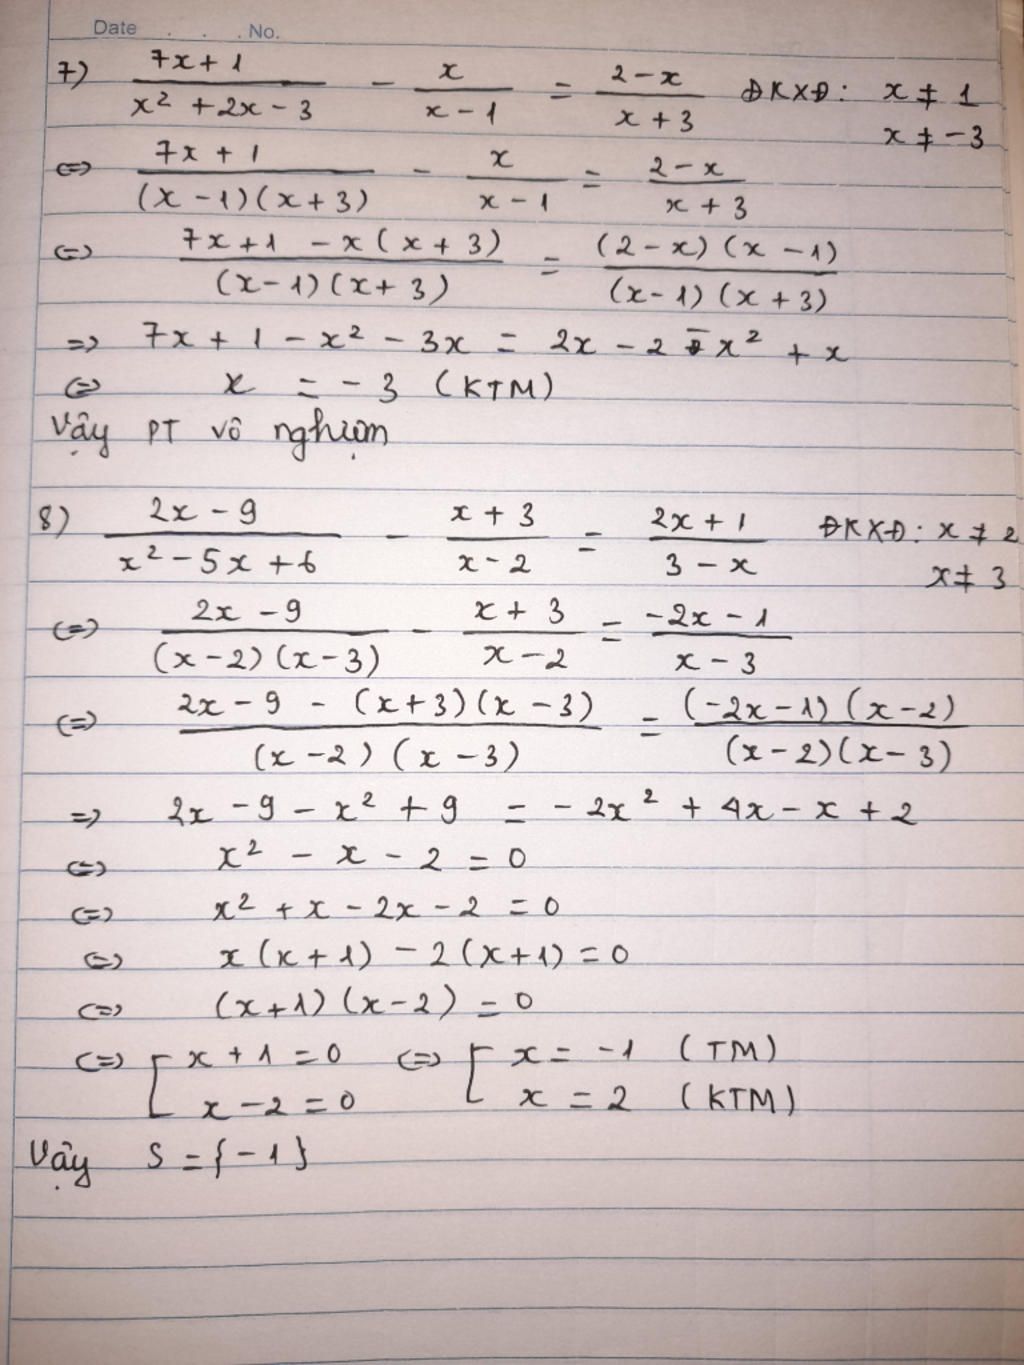 Date . . . No.
7) \frac{7x+1}{x^2+2x-3} - \frac{x}{x-1} = \frac{2-x}{x+3} ĐKXĐ: x ≠ 1
x ≠ -3
<=> \frac{7x+1}{(x-1)(x+3)} - \frac{x}{x-1} = \frac{2-x}{x+3}
<=> \frac{7x+1-x(x+3)}{(x-1)(x+3)} = \frac{(2-x)(x-1)}{(x-1)(x+3)}
=> 7x + 1 - x² - 3x = 2x - 2 - x² + x
<=> x = -3 (KTM)
Vậy PT vô nghiệm
8) \frac{2x-9}{x^2-5x+6} - \frac{x+3}{x-2} = \frac{2x+1}{3-x} ĐKXĐ: x ≠ 2
x ≠ 3
<=> \frac{2x-9}{(x-2)(x-3)} - \frac{x+3}{x-2} = \frac{-2x-1}{x-3}
<=> \frac{2x-9-(x+3)(x-3)}{(x-2)(x-3)} = \frac{(-2x-1)(x-2)}{(x-2)(x-3)}
=> 2x - 9 - x² + 9 = -2x² + 4x - x + 2
<=> x² - x - 2 = 0
<=> x² + x - 2x - 2 = 0
<=> x(x+1) - 2(x+1) = 0
<=> (x+1)(x-2) = 0
<=> [ x + 1 = 0 <=> [ x = -1 (TM)
x - 2 = 0 x = 2 (KTM)
Vậy S = {-1}